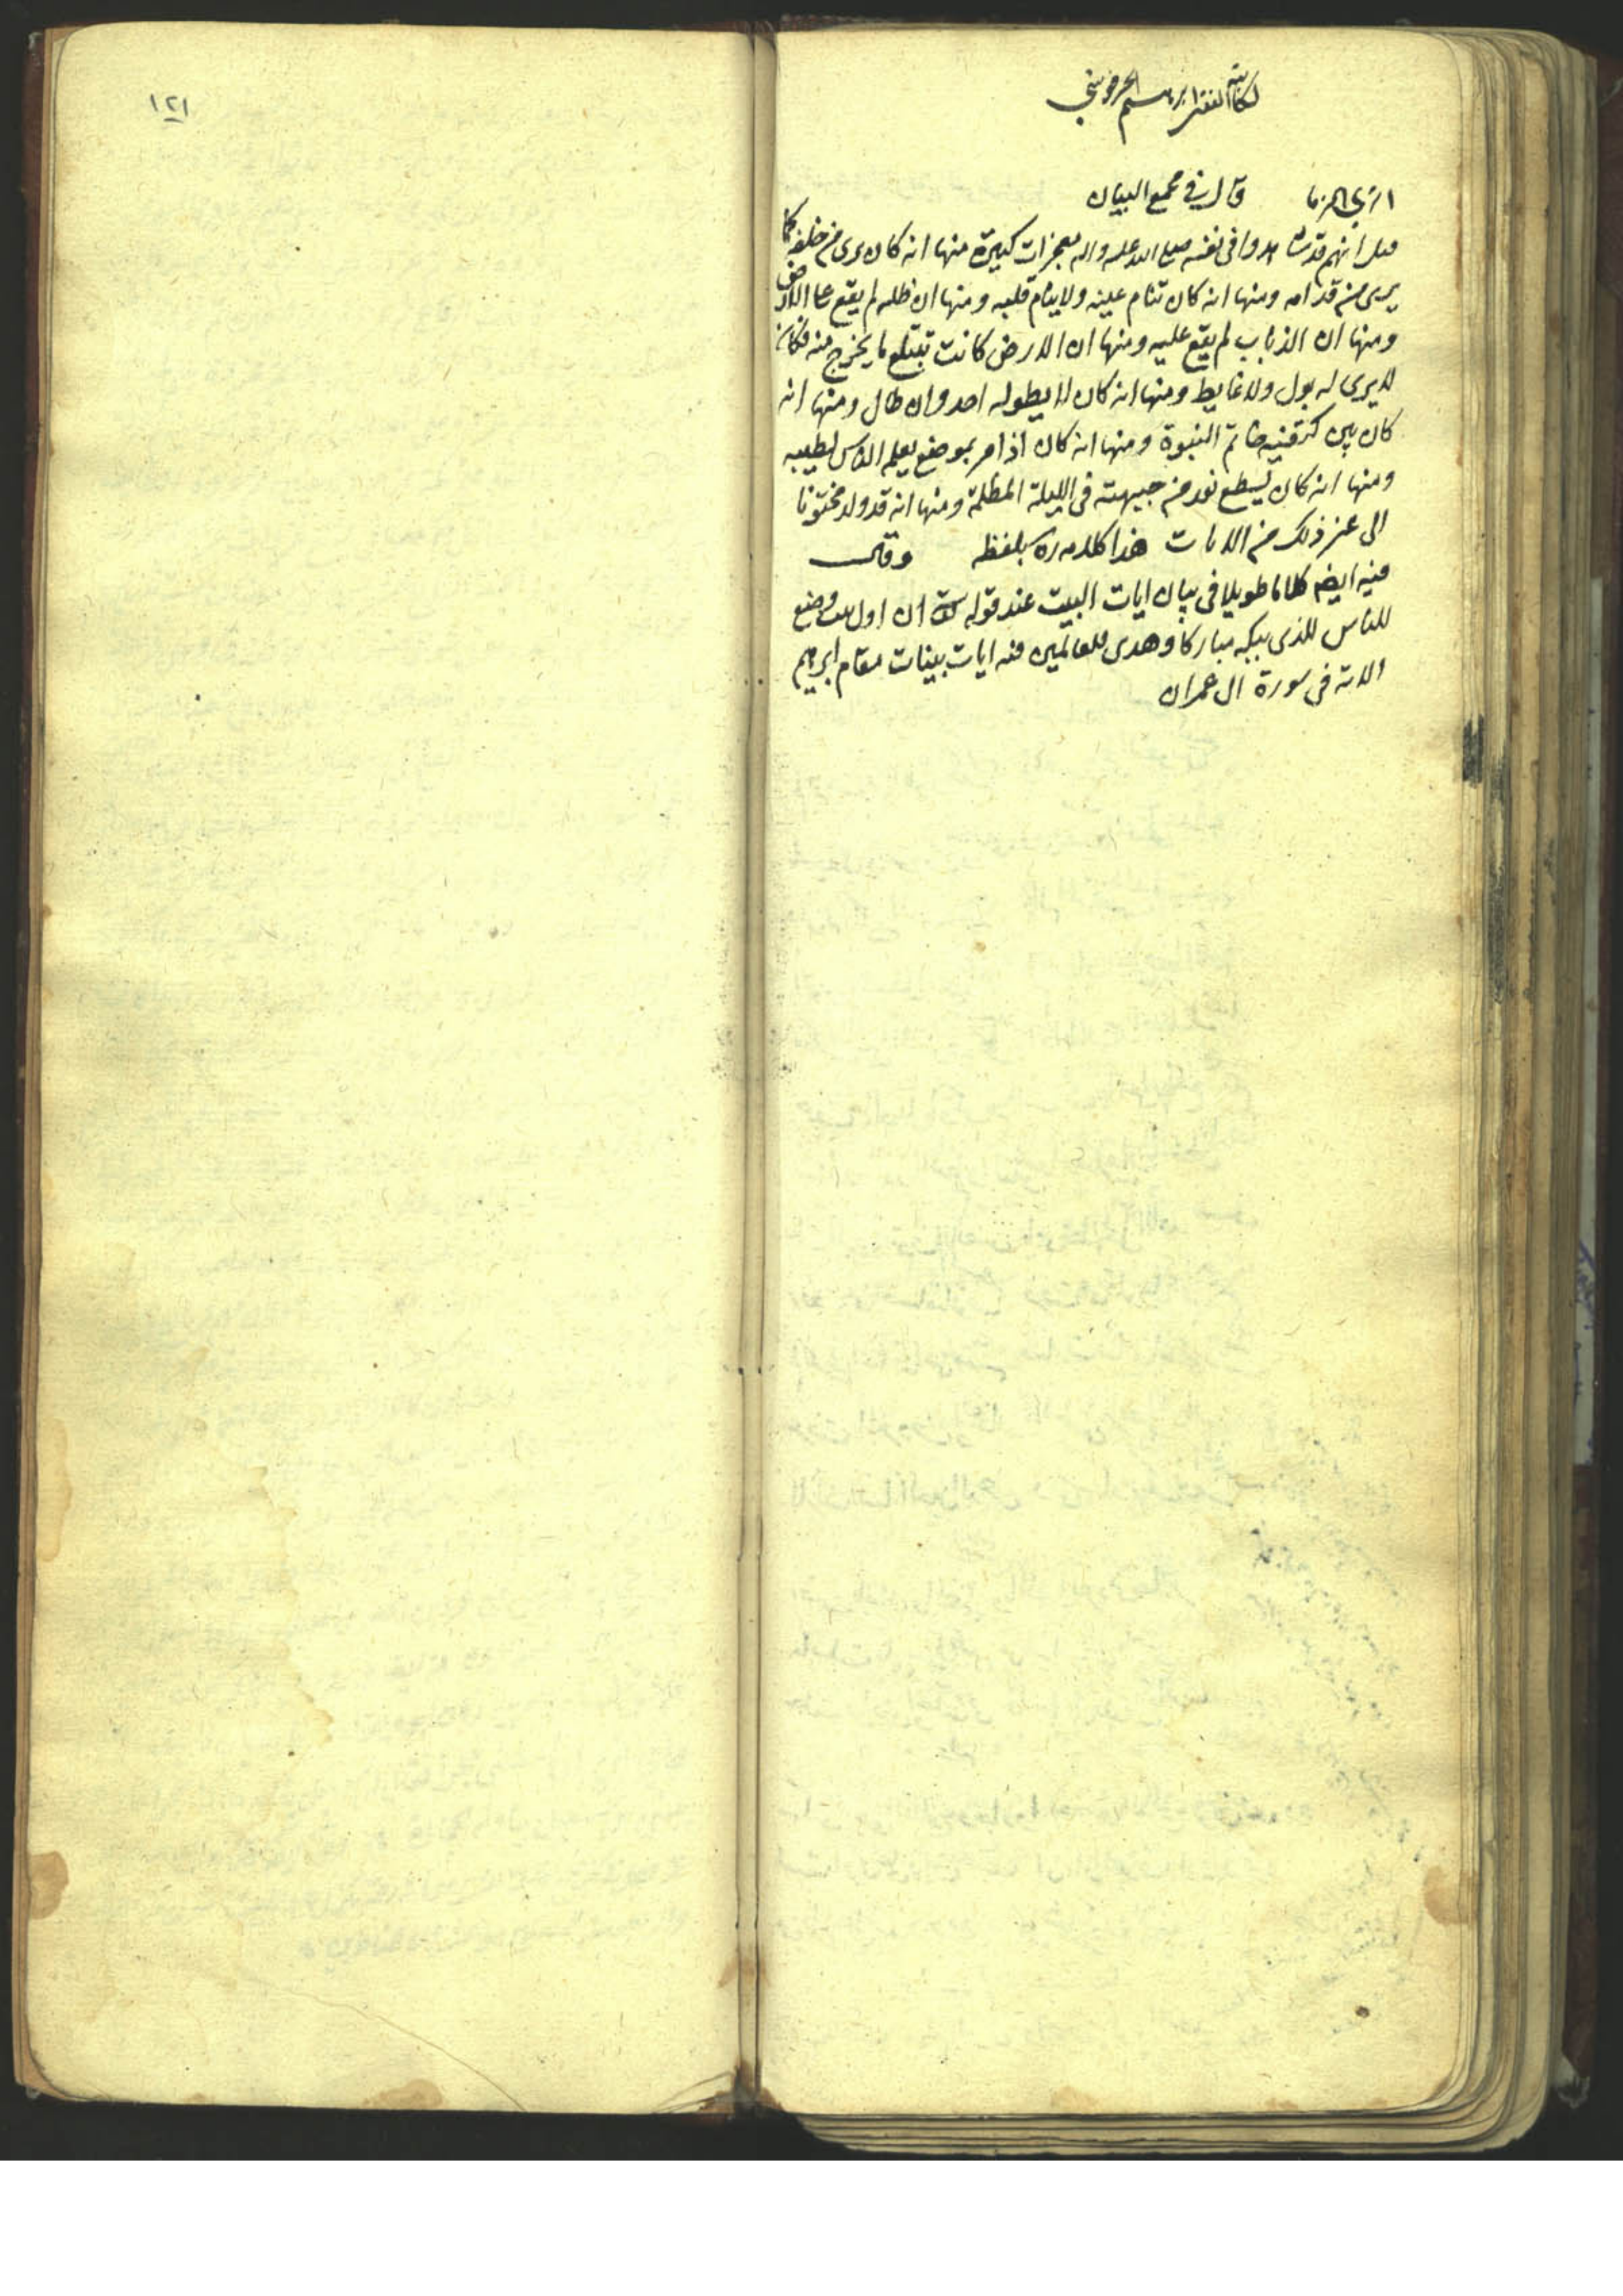 لكاتبه الفقير ابرهيم الحرفوشي
قال في مجمع البيان
انهم قد شاهدوا في نفسه صلى الله عليه واله معجزات كثيرة منها انه كان يرى من خلفه كما
يرى من قدامه ومنها انه كان تنام عينه ولا ينام قلبه ومنها ان ظله لم يقع على الارض
ومنها ان الذباب لم يقع عليه ومنها ان الارض كانت تبتلع ما يخرج منه فكان
لا يرى له بول ولا غايط ومنها انه كان لا يطوله احد وان طال ومنها انه
كان بين كتفيه خاتم النبوة ومنها انه كان اذا مر بموضع يعلم الناس لطيبه
ومنها انه كان يسطع نور من جبهته في الليلة المظلمة ومنها انه قد ولد مختونا
الى غير ذلك من الايات هذا كلامه ره بلفظه وقال
فيه ايضا كلاما طويلا في بيان ايات البيت عند قوله تعالى ان اول بيت وضع
للناس للذي ببكه مباركا وهدى للعالمين فيه ايات بينات مقام ابرهيم
الاية في سورة ال عمران
١٢١